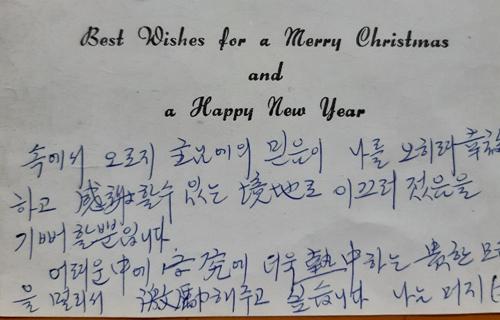 Best Wishes for a Merry Christmas
and
a Happy New Year
속에서 오로지 믿음이 나를 오히려 幸福
하고 感謝할수 있는 境地로 이끄러 젔음을
기뻐할뿐입니다
어려운 中에 더욱 熱中하는 貴한
을 멀리서 激勵해주고 싶습니다 나는 머지